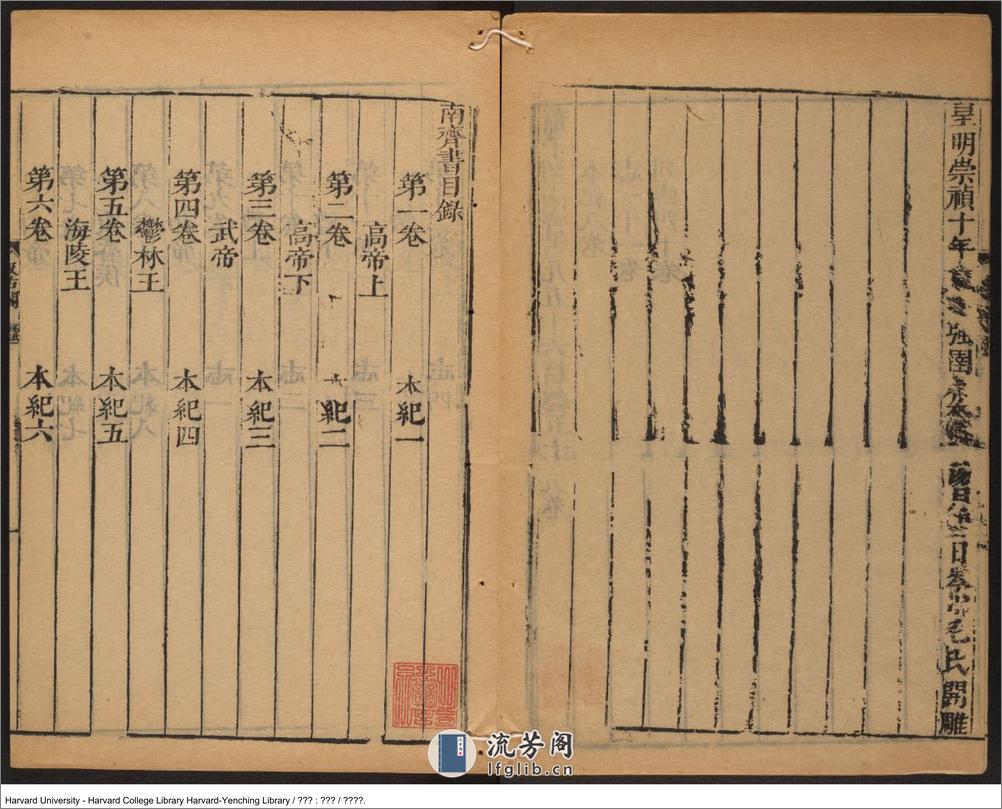 皇明崇禎十年歲強圉赤奮日琴川毛氏開雕
南齊書目錄
第一卷 本紀一
高帝上
第二卷 本紀二
高帝下
第三卷 本紀三
武帝
第四卷 本紀四
鬱林王
第五卷 本紀五
海陵王
第六卷 本紀六
流芳阁
lfglib.cn
Harvard University - Harvard College Library Harvard-Yenching Library / ??? : ??? / ????.